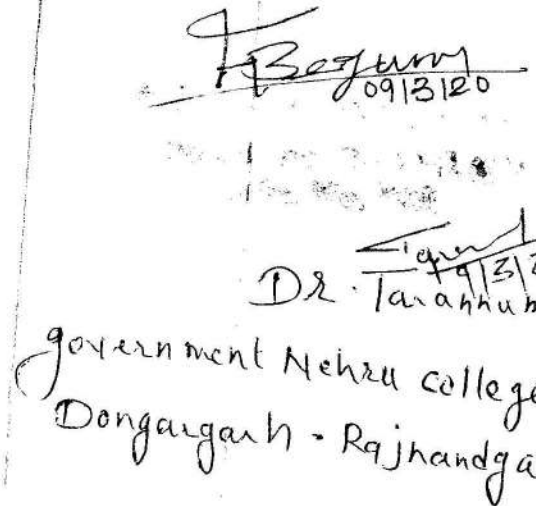 Begum
09/3/20
Dr. Tarannum
government Nehru college
Dongargarh - Rajnandga